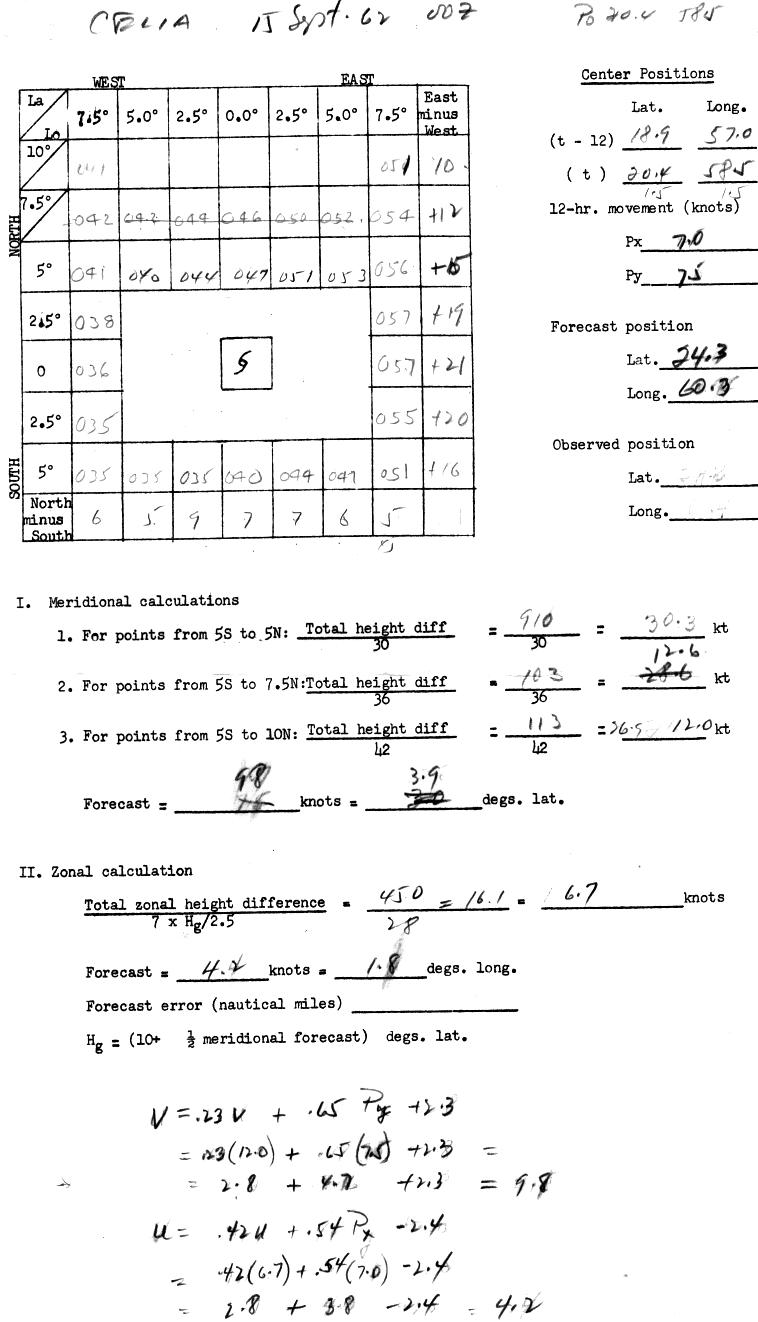 CELIA 15 Sept. 62 00Z P₀ 20.4 58.5
WEST EAST
La Lo 7.5° 5.0° 2.5° 0.0° 2.5° 5.0° 7.5° East minus West
NORTH
10° 041 051 10
7.5° 042 042 044 046 050 052. 054 +12
5° 041 040 044 047 051 053 056 +15
2.5° 038 057 +19
0 036 057 +21
2.5° 035 055 +20
SOUTH
5° 035 035 035 040 044 047 051 +16
North minus South 6 5. 9 7 7 6 5
Center Positions
Lat. Long.
(t - 12) 18.9 57.0
( t ) 20.4 58.5
1.5 1.5
12-hr. movement (knots)
Px 7.0
Py 7.5
Forecast position
Lat. 24.3
Long. 60.3
Observed position
Lat.
Long.
I. Meridional calculations
1. For points from 5S to 5N: Total height diff / 30 = 910 / 30 = 30.3 kt
12.6
2. For points from 5S to 7.5N: Total height diff / 36 = 103 / 36 = 28.6 kt
3. For points from 5S to 10N: Total height diff / 42 = 113 / 42 = 26.9 12.0 kt
Forecast = 98 knots = 3.9 degs. lat.
II. Zonal calculation
Total zonal height difference / 7 x Hg/2.5 = 450 / 28 = 16.1 = 6.7 knots
Forecast = 4.2 knots = 1.8 degs. long.
Forecast error (nautical miles)
Hg = (10+ ½ meridional forecast) degs. lat.
V = .23 V + .65 Py +2.3
= .23(12.0) + .65(7.5) +2.3 =
= 2.8 + 4.7 +2.3 = 9.8
u = .42u + .54 Px -2.4
= .42(6.7) + .54(7.0) -2.4
= 2.8 + 3.8 -2.4 = 4.2